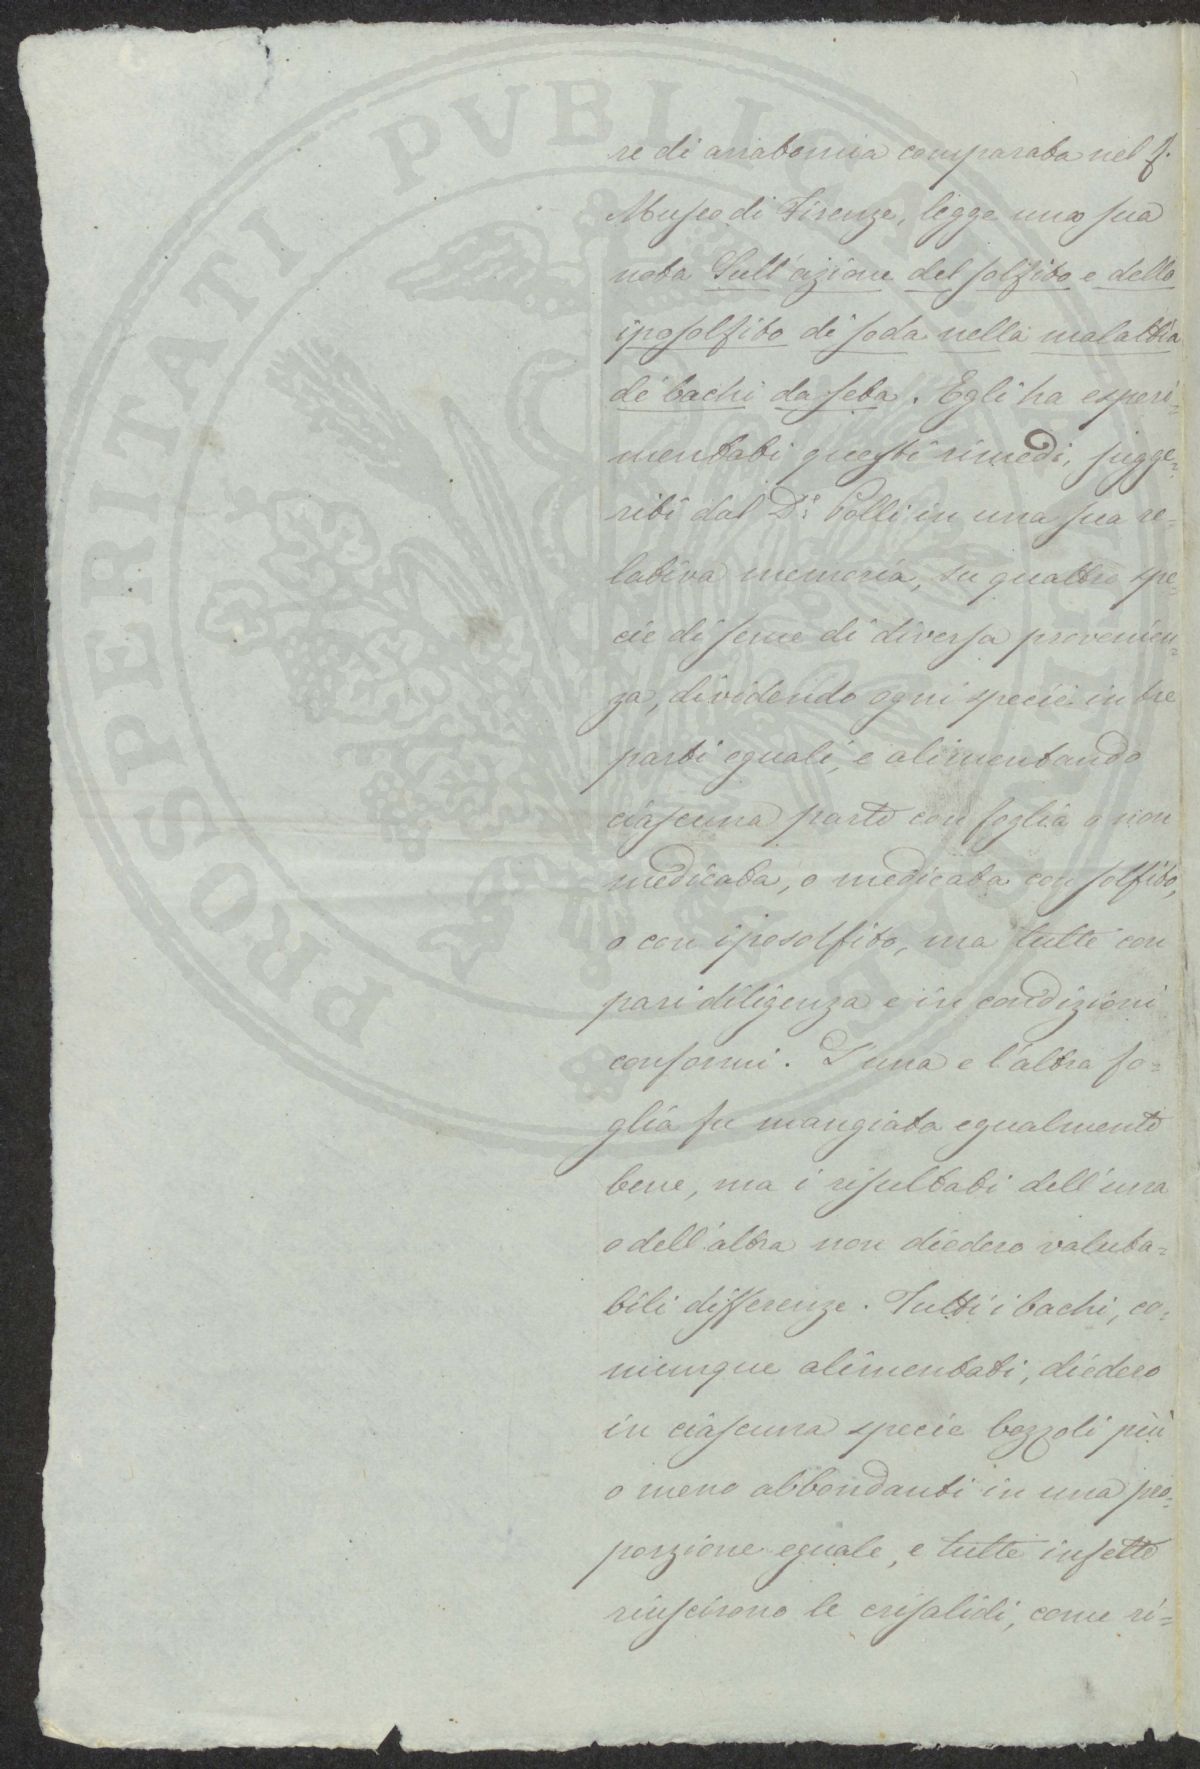 re di anatomia comparata nel f.
Museo di Firenze, legge una sua
nota Sull'azione del solfito e dello
iposolfito di soda nella malattia
de' bachi da seta. Egli ha esperi=
mentati questi rimedi, sugge=
riti dal D.r Polli in una sua re=
lativa memoria, su quattro spe=
cie di seme di diversa provenien=
za, dividendo ogni specie in tre
parti eguali, e alimentando
ciascuna parte con foglia o non
medicata, o medicata con solfito,
o con iposolfito, ma tutte con
pari diligenza e in condizioni
conformi. L'una e l'altra fo=
glia fu mangiata egualmente
bene, ma i risultati dell'una
o dell'altra non diedero valuta=
bili differenze. Tutti i bachi, co=
munque alimentati, diedero
in ciascuna specie bozzoli più
o meno abbondanti in una pro=
porzione eguale, e tutte infette
riuscirono le crisalidi, come ri=
PROSPERITATI PVBLICAE